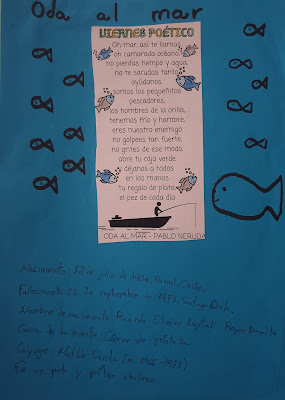 Oda al mar
VIERNES POÉTICO
Oh mar, así te llamas
oh camarada océano,
no pierdas tiempo y agua,
no te sacudas tanto
ayúdanos,
somos los pequeñitos
pescadores,
los hombres de la orilla,
tenemos frío y hambre,
eres nuestro enemigo
no golpees tan fuerte,
no grites de ese modo,
abre tu caja verde
y déjanos a todos
en las manos
tu regalo de plata:
el pez de cada día.
ODA AL MAR - PABLO NERUDA
Nacimiento: 12 de julio de 1904, Parral, Chile.
Fallecimiento: 23 de septiembre de 1973, Santiago, Chile.
Nombre de nacimiento: Ricardo Eliécer Neftalí Reyes Basoalto
Causa de la muerte: Cáncer de próstata
Cónyuge: Matilde Urrutia (m. 1966-1973)
Fue un poeta y político chileno